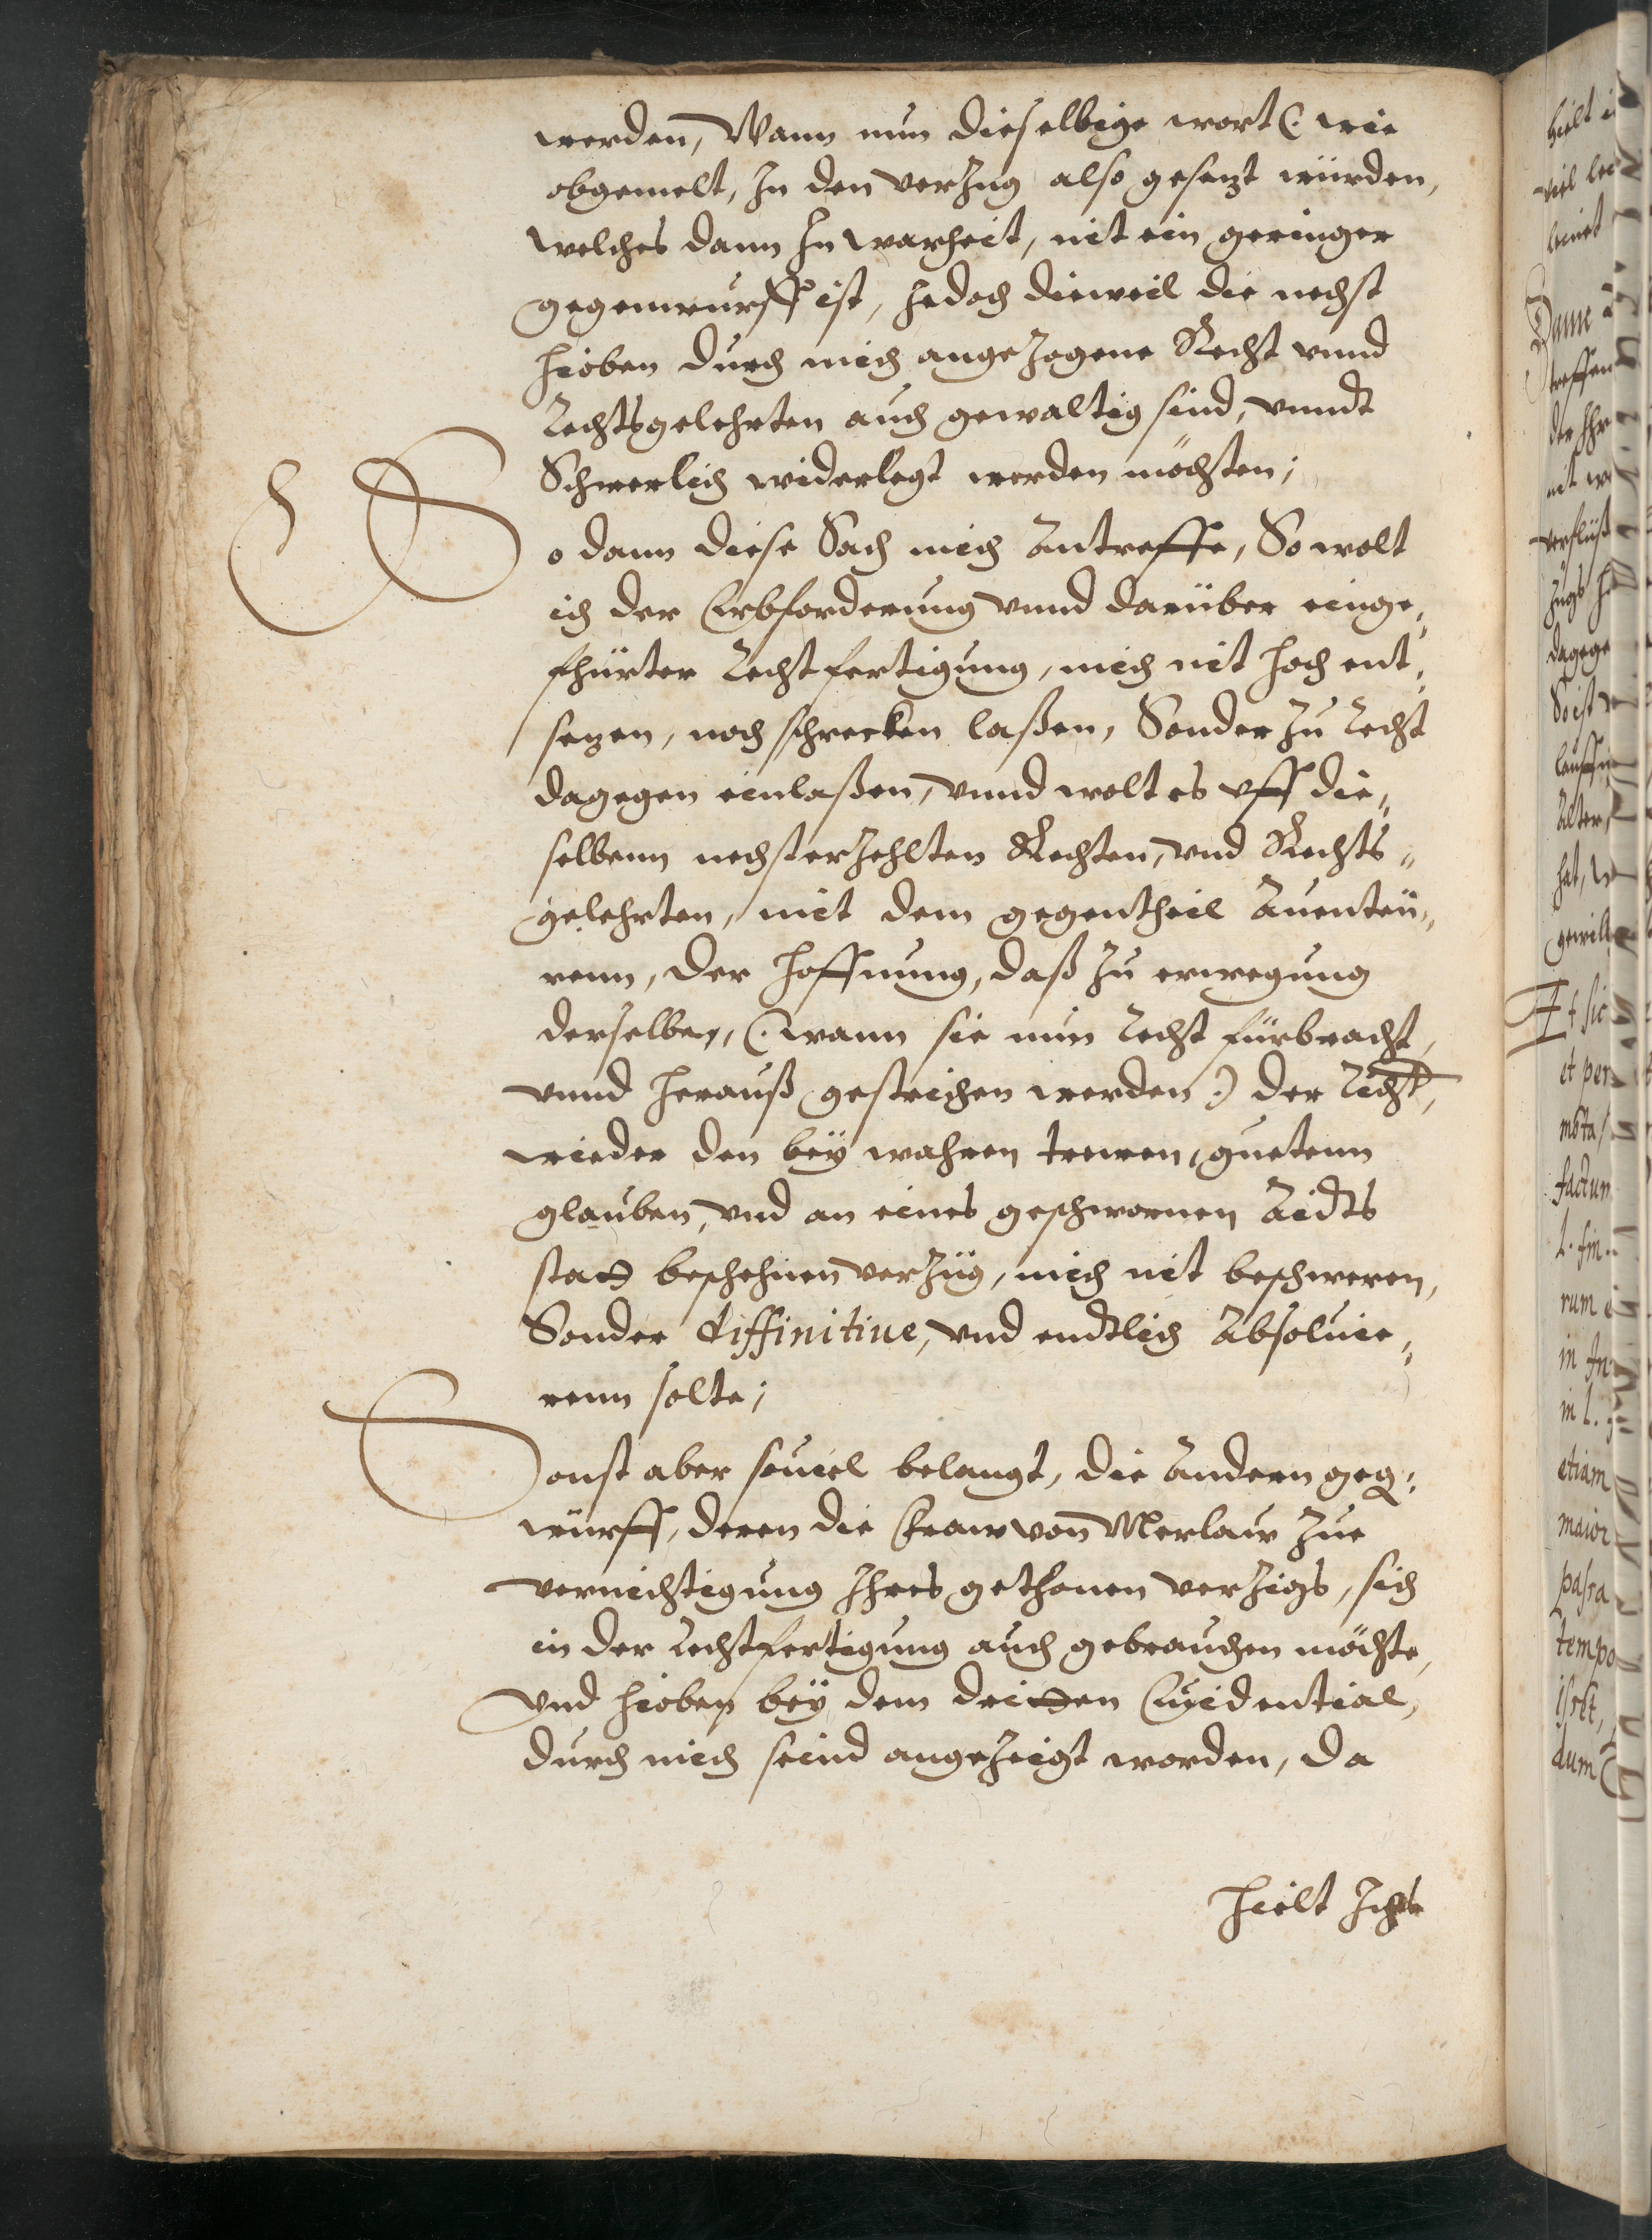 werden, Wann nun dieselbige wort (: wie
obgemelt, In den verzug also gesezt würden,
welches dann In warheit, nit ein geringer
gegenwurff ist, Jedoch dieweil die nechst
hieoben durch mich angezogene Recht vnnd
Rechtsgelehrten auch gewaltig sind, vnndt
Schwerlich widerlegt werden möchten;
So dann diese Sach mich Antreffe, So wolt
ich der Erbforderung vnnd darüber einge„
fhürter Rechtfertigung, mich nit hoch ent„
sezen, noch schrecken laßen, Sonder zu Recht
dagegen einlaßen, vnnd wolt es vff die„
selbenn nechsterzehlten Rechten, vnd Rechts„
gelehrten, mit dem gegentheil Auenteü„
renn, der hoffnung, daß zu erwegung
derselben, (: wann sie nun Recht fürbracht,
vnnd herauß gestrichen werden :) der Richter,
wieder den bey wahren trewen, guetenn
glauben, vnd an eines geschwornen Aidts
statt beschehnen verzüg, mich nit beschweren,
Sonder diffinitiue, vnd endtlich Absoluie„
renn solte;
Sonst aber souiel belangt, die Andern geg„
würff, deren die Fraw von Merlaw zue
vernichtigung Ihres gethonen verzigs, sich
in der Rechtfertigung auch gebrauchen möchte,
Vnd hieoben bey dem dritten Euidential,
durch mich seind angezeigt worden, da
hielt Ichs